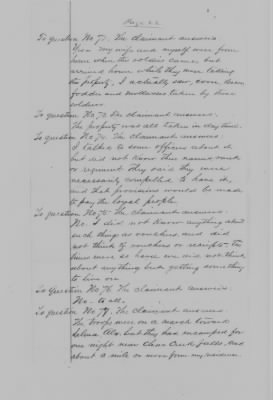 Page 22
To question No. 72. The claimant answers.
Upon my wife and myself were from
home when the soldiers came but
arrived home while they were taking
the property, I actually saw, corn, bacon
fodder and molasses taken by these
soldiers.
To question No. 73. The claimant answers.
The property was all taken in day time.
To question No. 74. The claimant answers.
I talked to some officers about it
but did not know their names rank
or regiment. They said they were
necessarily compelled to have it,
and that provisions would be made
to pay the loyal people.
To question No. 75. The claimant answers.
No. I did not know anything about
such things as vouchers, and did
not think of vouchers or receipts. The
times were so hard, we did not think
about anything but getting something
to live on.
To question No. 76. The claimant answers.
No - to all.
To question No. 77. The claimant answers.
The troops were on a march toward
Selma Ala. but they had encamped for
one night near Clear Creek falls. And
about a mile or more from my residence.